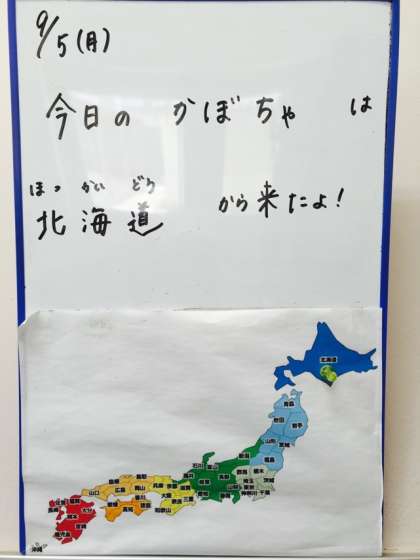 9/5(月)
今日の かぼちゃ は
ほっ かい どう
北海道 から来たよ!
北海道
青森
秋田
岩手
山形
宮城
福島
新潟
石川
富山
栃木
群馬
茨城
埼玉
東京
千葉
神奈川
長野
岐阜
愛知
三重
滋賀
京都
大阪
兵庫
和歌山
鳥取
島根
岡山
広島
山口
香川
愛媛
徳島
高知
福岡
佐賀
大分
長崎
熊本
宮崎
鹿児島
沖縄